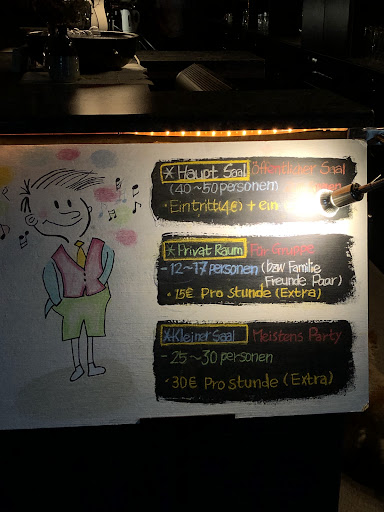 * Haupt Saal Öffentlicher Saal
(40~50 personen
• Eintritt (4€) + ein
* Privat Raum Für Gruppe
- 12~17 personen (bzw Familie
Freunde Paar)
• 15€ Pro stunde (Extra)
* Kleiner Saal Meistens Party
- 25~30 personen
• 30€ Pro stunde (Extra)